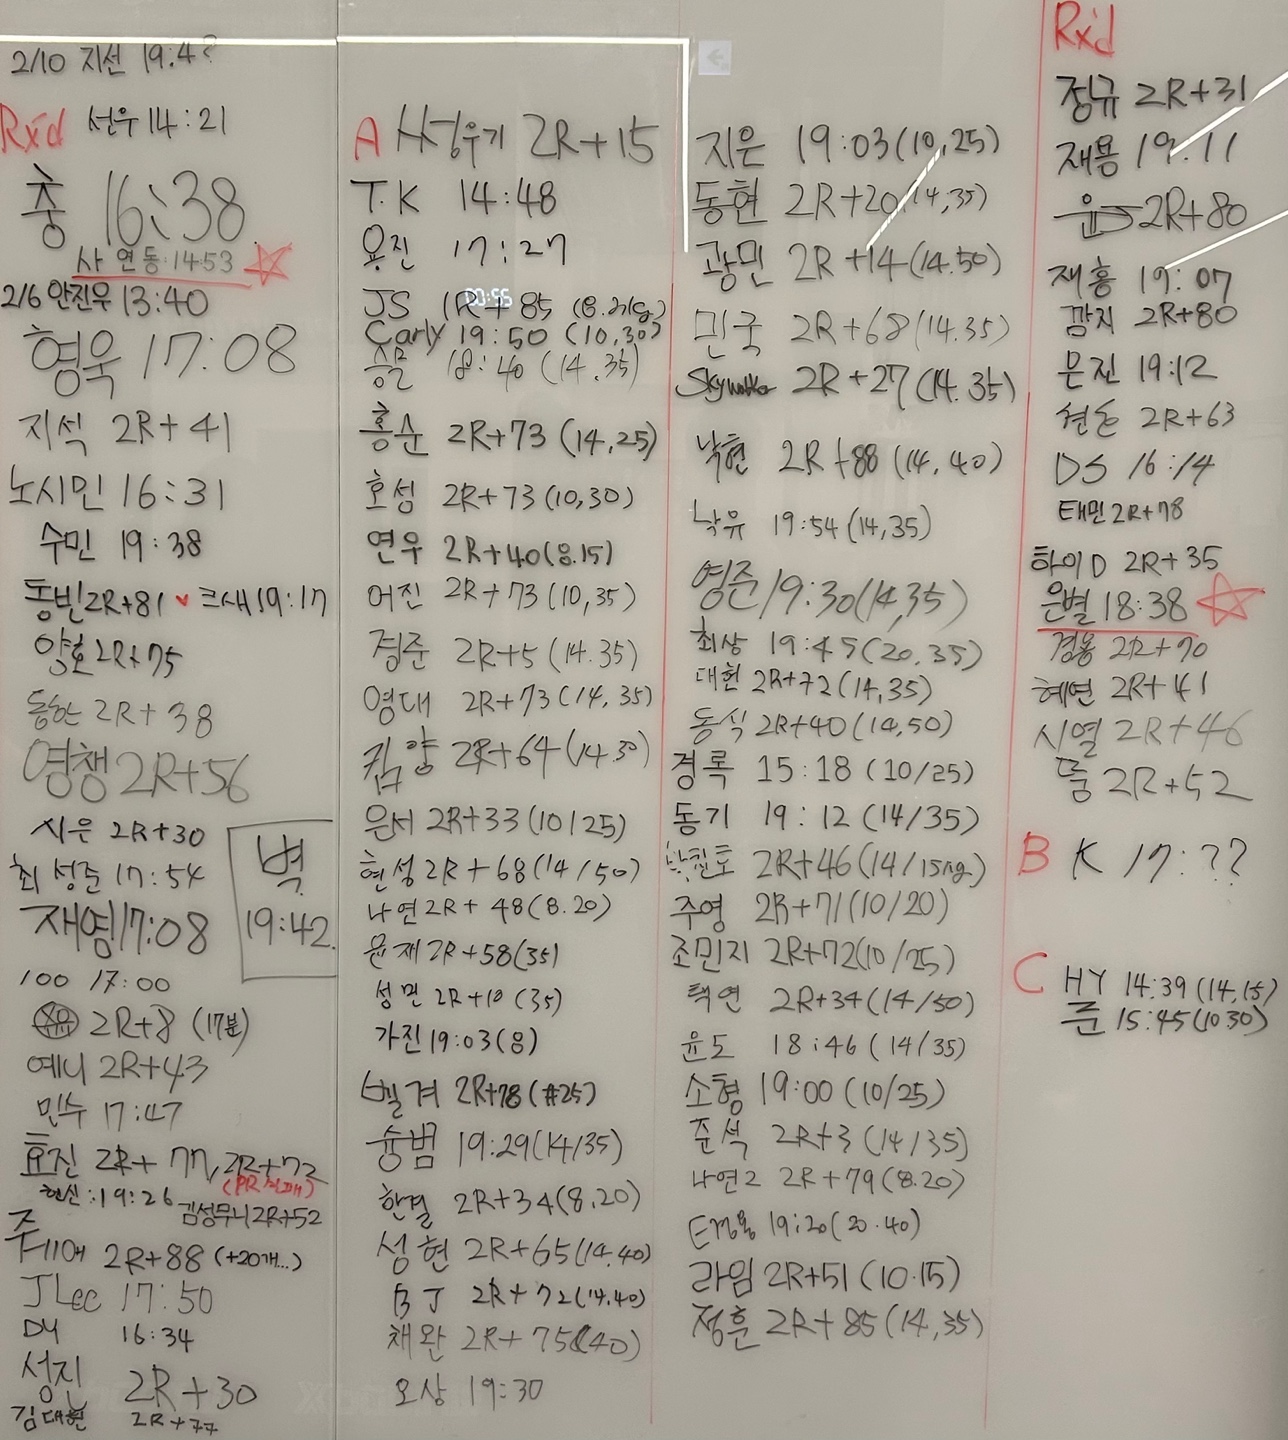 2/10 지선 19:4?
Rxd 선우 14:21
충 16:38
사 연동 14:53
2/6 안진우 13:40
형욱 17:08
지석 2R+41
노시민 16:31
수민 19:38
동빈 2R+81 ♥ 크새 19:17
양호 2R+75
동한 2R+38
영챙 2R+56
시은 2R+30
최성준 17:54
벽 19:42.
재영 17:08
100 17:00
2R+8 (17분)
예니 2R+43
민수 17:47
효진 2R+77, 2R+73
현신 : 19:26 김성무니 2R+52
2R+88 (+20개...)
JLee 17:50
DY 16:34
성진 2R+30
김대현 2R+77
A 사성우기 2R+15
T.K 14:48
용진 17:27
JS 1R+85
Carly 19:50 (10,30)
승운 18:40 (14.35)
홍순 2R+73 (14,25)
호성 2R+73 (10,30)
연우 2R+40 (8.15)
어진 2R+73 (10,35)
경준 2R+5 (14.35)
영대 2R+73 (14,35)
킴양 2R+64 (14.50)
은서 2R+33 (10/25)
현성 2R+68 (14/50)
나연 2R+48 (8.20)
윤재 2R+58 (35)
성민 2R+10 (35)
가진 19:03 (8)
벨겨 2R+78 (#25)
슝범 19:29 (14/35)
한결 2R+34 (8.20)
성현 2R+65 (14.40)
BJ 2R+72 (14.40)
채완 2R+75 (40)
오상 19:30
지은 19:03 (10,25)
동현 2R+20 (14,35)
광민 2R+14 (14.50)
민국 2R+68 (14.35)
Skywalker 2R+27 (14.35)
낙현 2R+88 (14,40)
낙유 19:54 (14,35)
영준 19:30 (14,35)
최상 19:45 (20.35)
대헌 2R+72 (14,35)
동식 2R+40 (14,50)
경록 15:18 (10/25)
동기 19:12 (14/35)
2R+46 (14/15kg)
주영 2R+71 (10/20)
조민지 2R+72 (10/25)
택연 2R+34 (14/50)
윤도 18:46 (14/35)
소형 19:00 (10/25)
준석 2R+3 (14/35)
나연2 2R+79 (8.20)
19:20 (20.40)
라임 2R+51 (10.15)
정훈 2R+85 (14,35)
Rx'd
정규 2R+31
재용 19:11
윤 2R+80
재홍 19:07
깜지 2R+80
문진 19:12
현돈 2R+63
DS 16:14
태민 2R+78
하이D 2R+35
은별 18:38
경용 2R+70
혜연 2R+41
시열 2R+46
뚱 2R+52
B K 17:??
C HY 14:39 (14,15)
준 15:45 (10 30)